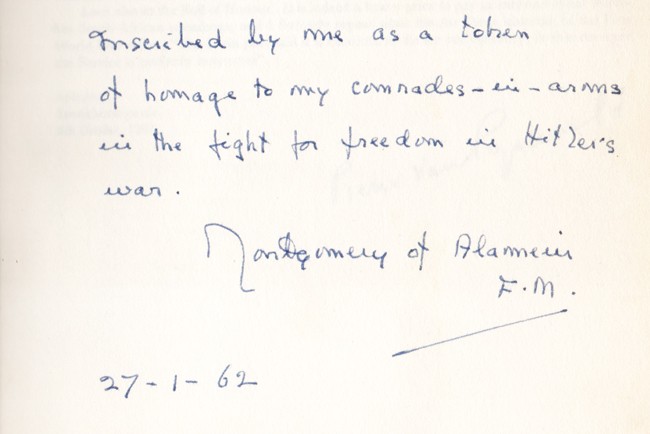 Inscribed by me as a token
of homage to my comrades-in-arms
in the fight for freedom in Hitler's
war.
Montgomery of Alamein
F.M.
27-1-62